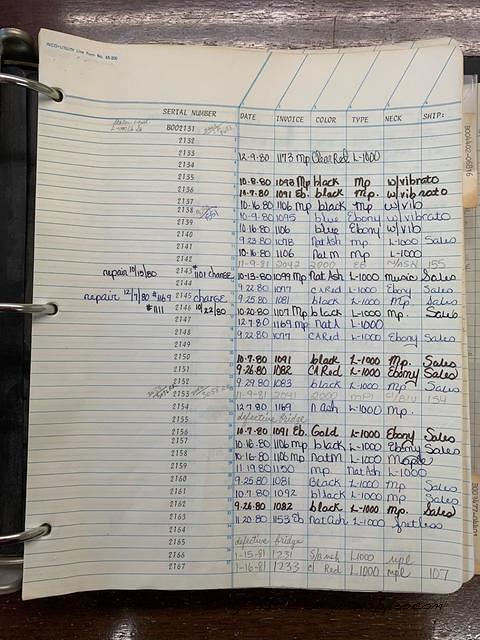 SERIAL NUMBER DATE INVOICE COLOR TYPE NECK SHIP:
B002131
2132
2133 12-9-80 1173 mp Clear Red L-1000
2134
2135 10-8-80 1093 Mp black mp w/vibrato
2136 10-7-80 1091 Eb. black mp. w/vibrato
2137 10-16-80 1106 mp black mp w/vib
2138 10-9-80 1095 blue Ebony w/vibrato
2139 10-16-80 1106 blue Ebony w/vib
2140 9-23-80 1078 Nat Ash mp. L-1000 Sales
2141 10-16-80 1106 Nat m mp L-1000
2142 11-9-81 2042 2000 155
repair 10/10/80 2143 #1101 change 10-13-80 1099 Mp Nat Ash L-1000 Sales
2144 9-22-80 1077 CA Red L-1000 Ebony Sales
repair 12/7/80 #1169 2145 charge 9-25-80 1081 black L-1000 Mp Sales
#1111 2146 10/22/80 10-20-80 1107 Mp black L-1000 mp. Sales
2147 12-7-80 1169 mp Nat A L-1000
2148 9-22-80 1077 CA Red L-1000 Ebony Sales
2149
2150 10-7-80 1091 black L-1000 Mp. Sales
2151 9-26-80 1082 CA Red L-1000 Ebony Sales
2152 9-29-80 1083 black L-1000 mp Sales
2153 11-9-81 2041 2000 154
2154 12-7-80 1169 n ash L-1000 mp.
2155 defective bridge
2156 10-7-80 1091 Eb. Gold L-1000 Ebony Sales
2157 10-16-80 1106 mp black L-1000 Ebony Sales
2158 10-16-80 1106 mp nat m L-1000 Maple
2159 11-19-80 1150 mp. Nat Ash L-1000
2160 9-25-80 1081 Black L-1000 mp Sales
2161 10-7-80 1092 black L-1000 mp Sales
2162 9-26-80 1082 black L-1000 mp. Sales
2163 11-20-80 1153 Eb Nat Ash L-1000 fretless
2164
2165 defective bridge
2166 1-15-81 1231 L1000 mpl
2167 1-16-81 1233 cl Red L1000 mpl 107